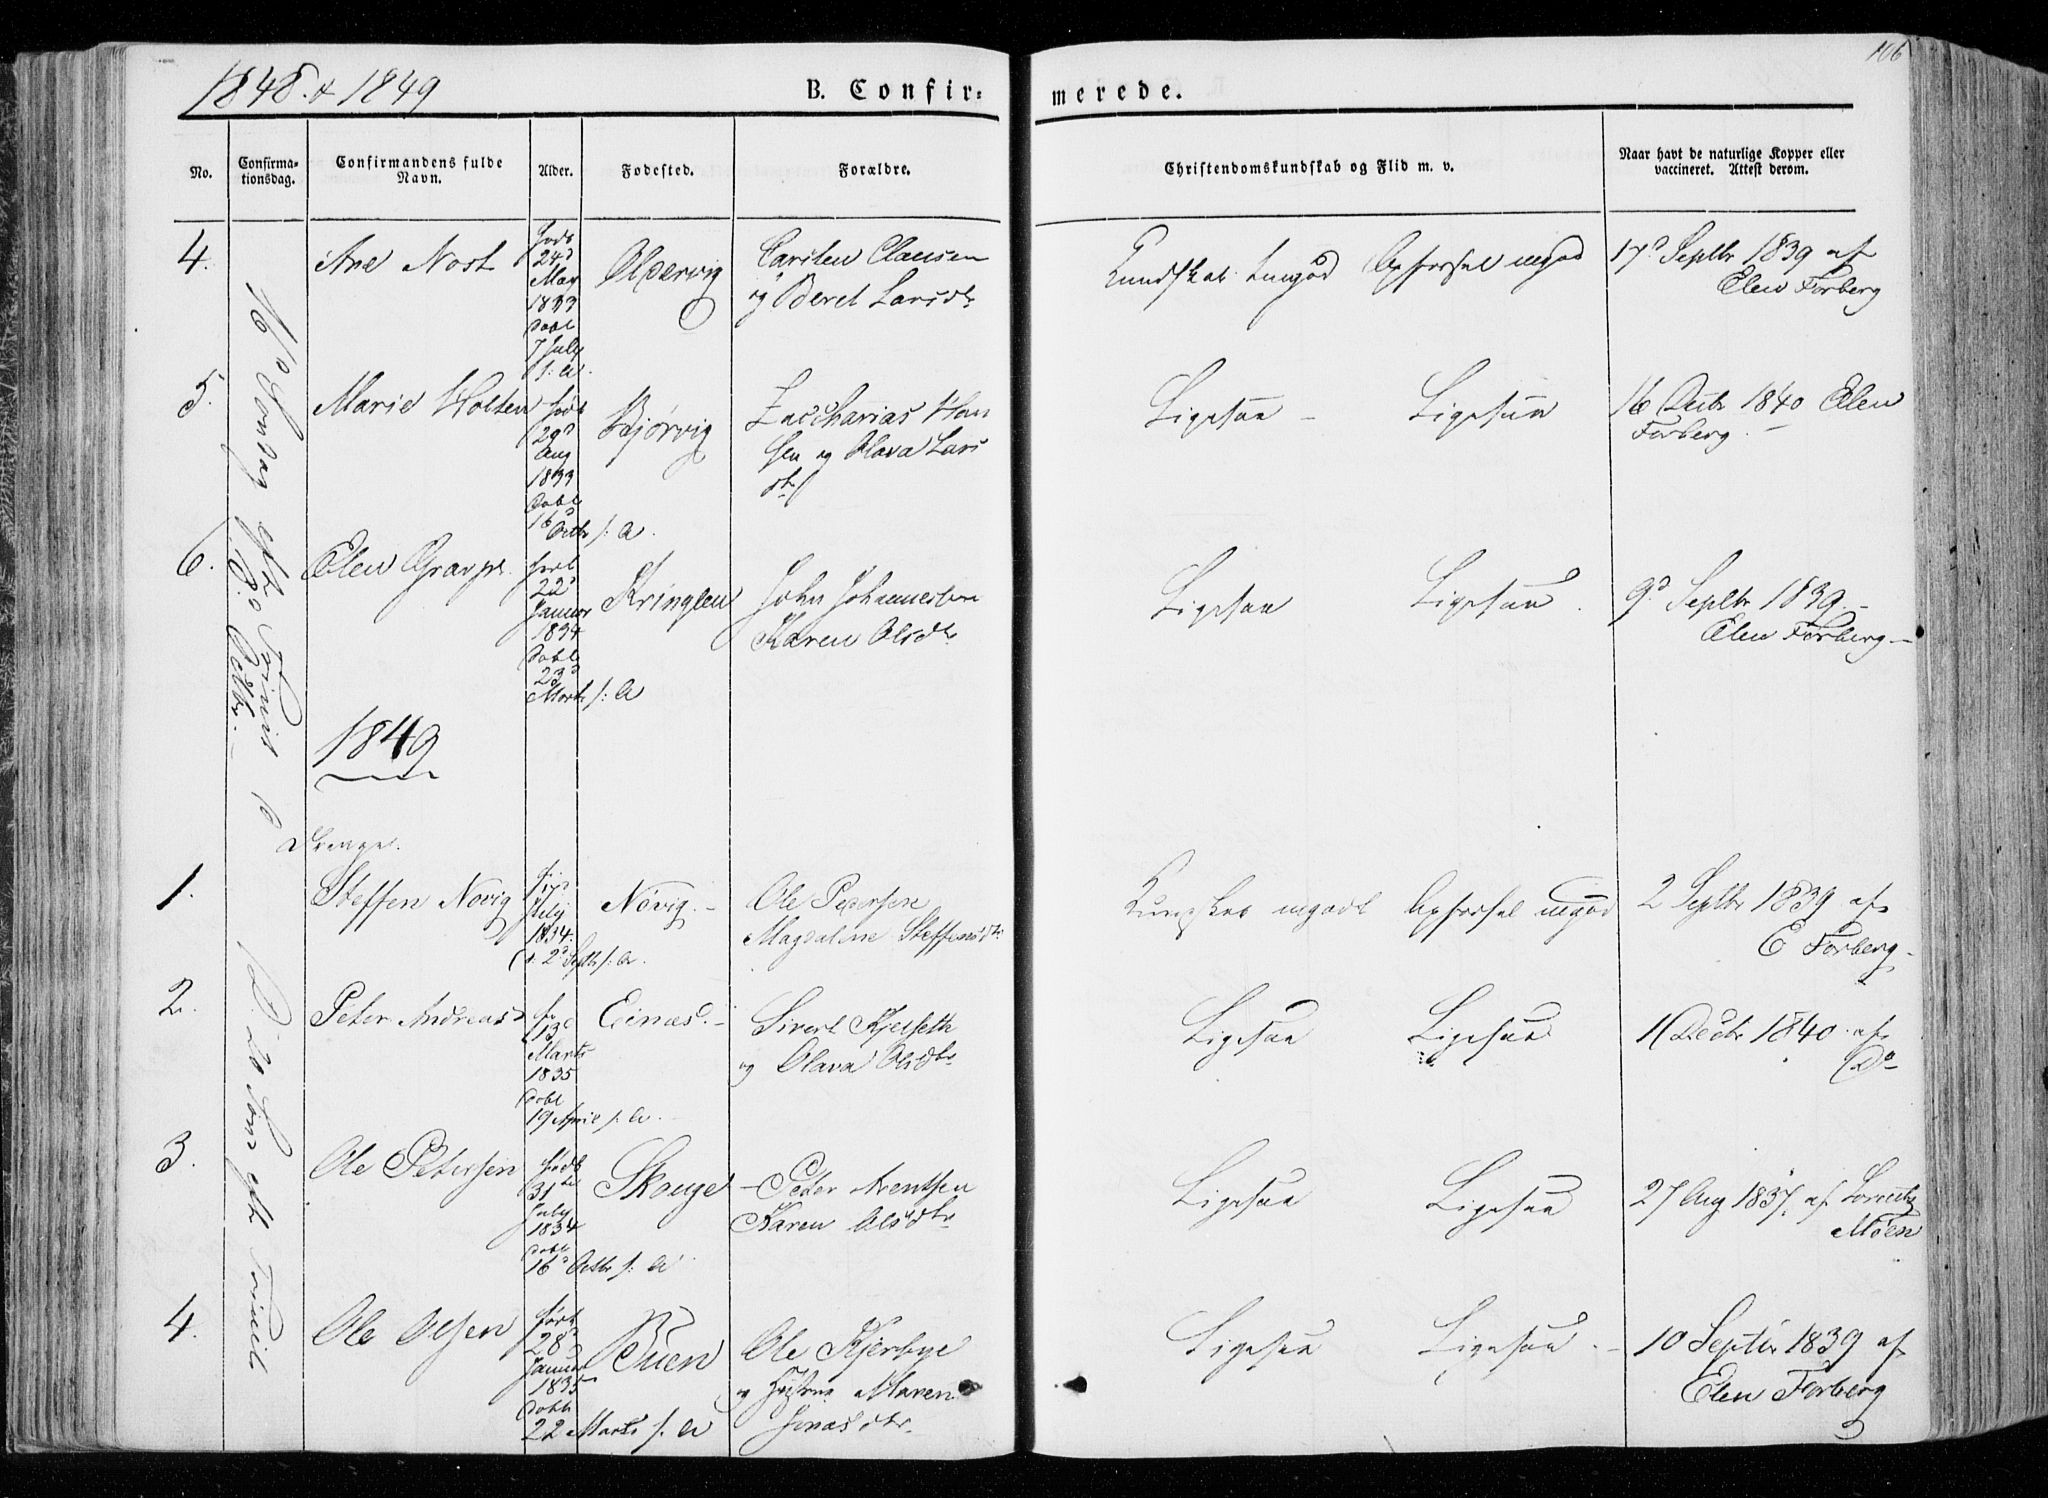 1848 & 1849
B. Confir=
merede.
106
No.
Confirma-
tionsdag.
Confirmandens fulde
Navn.
Alder.
Fødested.
Forældre.
Christendomskundskab og Flid m. v.
Naar havt de naturlige Kopper eller
vaccineret. Attest derom.
4.
Ane Nost
født
24d
May
1833
døbt
7 July
s: A.
Oldervig
Carsten Clausen
og Beret Larsdtr
Kundskab Opførsel mgod
17d Septbr 1839 af
Elen Forberg
5.
Marie Holten
født
29d
Aug
1833
døbt
16d
Octbr s: A.
Bjørvig
Zaccharias Han
sen og Olava Lars
dtr
Ligesaa
Ligesaa
16 1840 Elen
Forberg.
6.
Elen
født
22d
Januar
1834
døbt
23d
Marts s: A
Kringlen
John Johannesen
Karen Olsdtr
Ligesaa
Ligesaa
9d Septbr 1839.
Elen Forberg
16d Søndag eft. Trinit
D. 8 Octbr.
1849
Drenge.
1.
Steffen Novig
f.
17d
July
1834.
d. 2d Septbr s: A.
Növig.
Ole Pedersen
Magdaline Steffensdtr
Kundskab mgodt Opførsel mgod
2 Septbr 1839 af
E Forberg.
2.
Peter Andreas
f.
13d
Marts
1835
døbt
19 April s. A.
Einæs.
Sivert Kjelseth
og Olava Olsdtr
Ligesaa
Ligesaa
11 Decbr 1840 af
Do
3.
Ole Petersen
født
31te
July
1834
døbt
16d Octbr s: A.
Skouge
Peder Arentsen
Karen Olsdtr
Ligesaa
Ligesaa
27 Aug 1837. af Lorentz
Moen
4.
Ole Olsen
født
28d
Januar
1835
døbt
22 Marts s. A
Tuen
Ole Kjerbye
og Hustrue Maren
Jonasdtr.
Ligesaa
Ligesaa.
10 Septbr 1839 af
Elen Forberg
Søn: eft Trinit